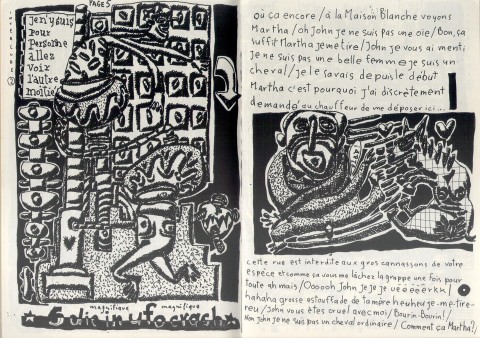 PAGE 5
je n'y suis
pour
personne
allez
voir
l'autre
moitié
magnifique magnifique
5 die in ufo crash
où ça encore / à la Maison Blanche voyons
Martha / oh john je ne suis pas une oie / Bon, ça
suffit Martha je me tire / John je vous ai menti
je ne suis pas une belle femme je suis un
cheval / je le savais depuis le début
Martha c'est pourquoi j'ai discrètement
demandé au chauffeur de me déposer ici...
cette rue est interdite aux gros cannassons de votre
espèce et comme ça vous me lâchez la grappe une fois pour
toute ah mais / Ooooh John je je je uëëëërkk /
hahaha grosse estouffade de
heu heu je-me-tire-
reu / John vous êtes cruel avec moi / Bourin-Bourin! /
Non john je ne suis pas un cheval ordinaire / Comment ça Martha? /